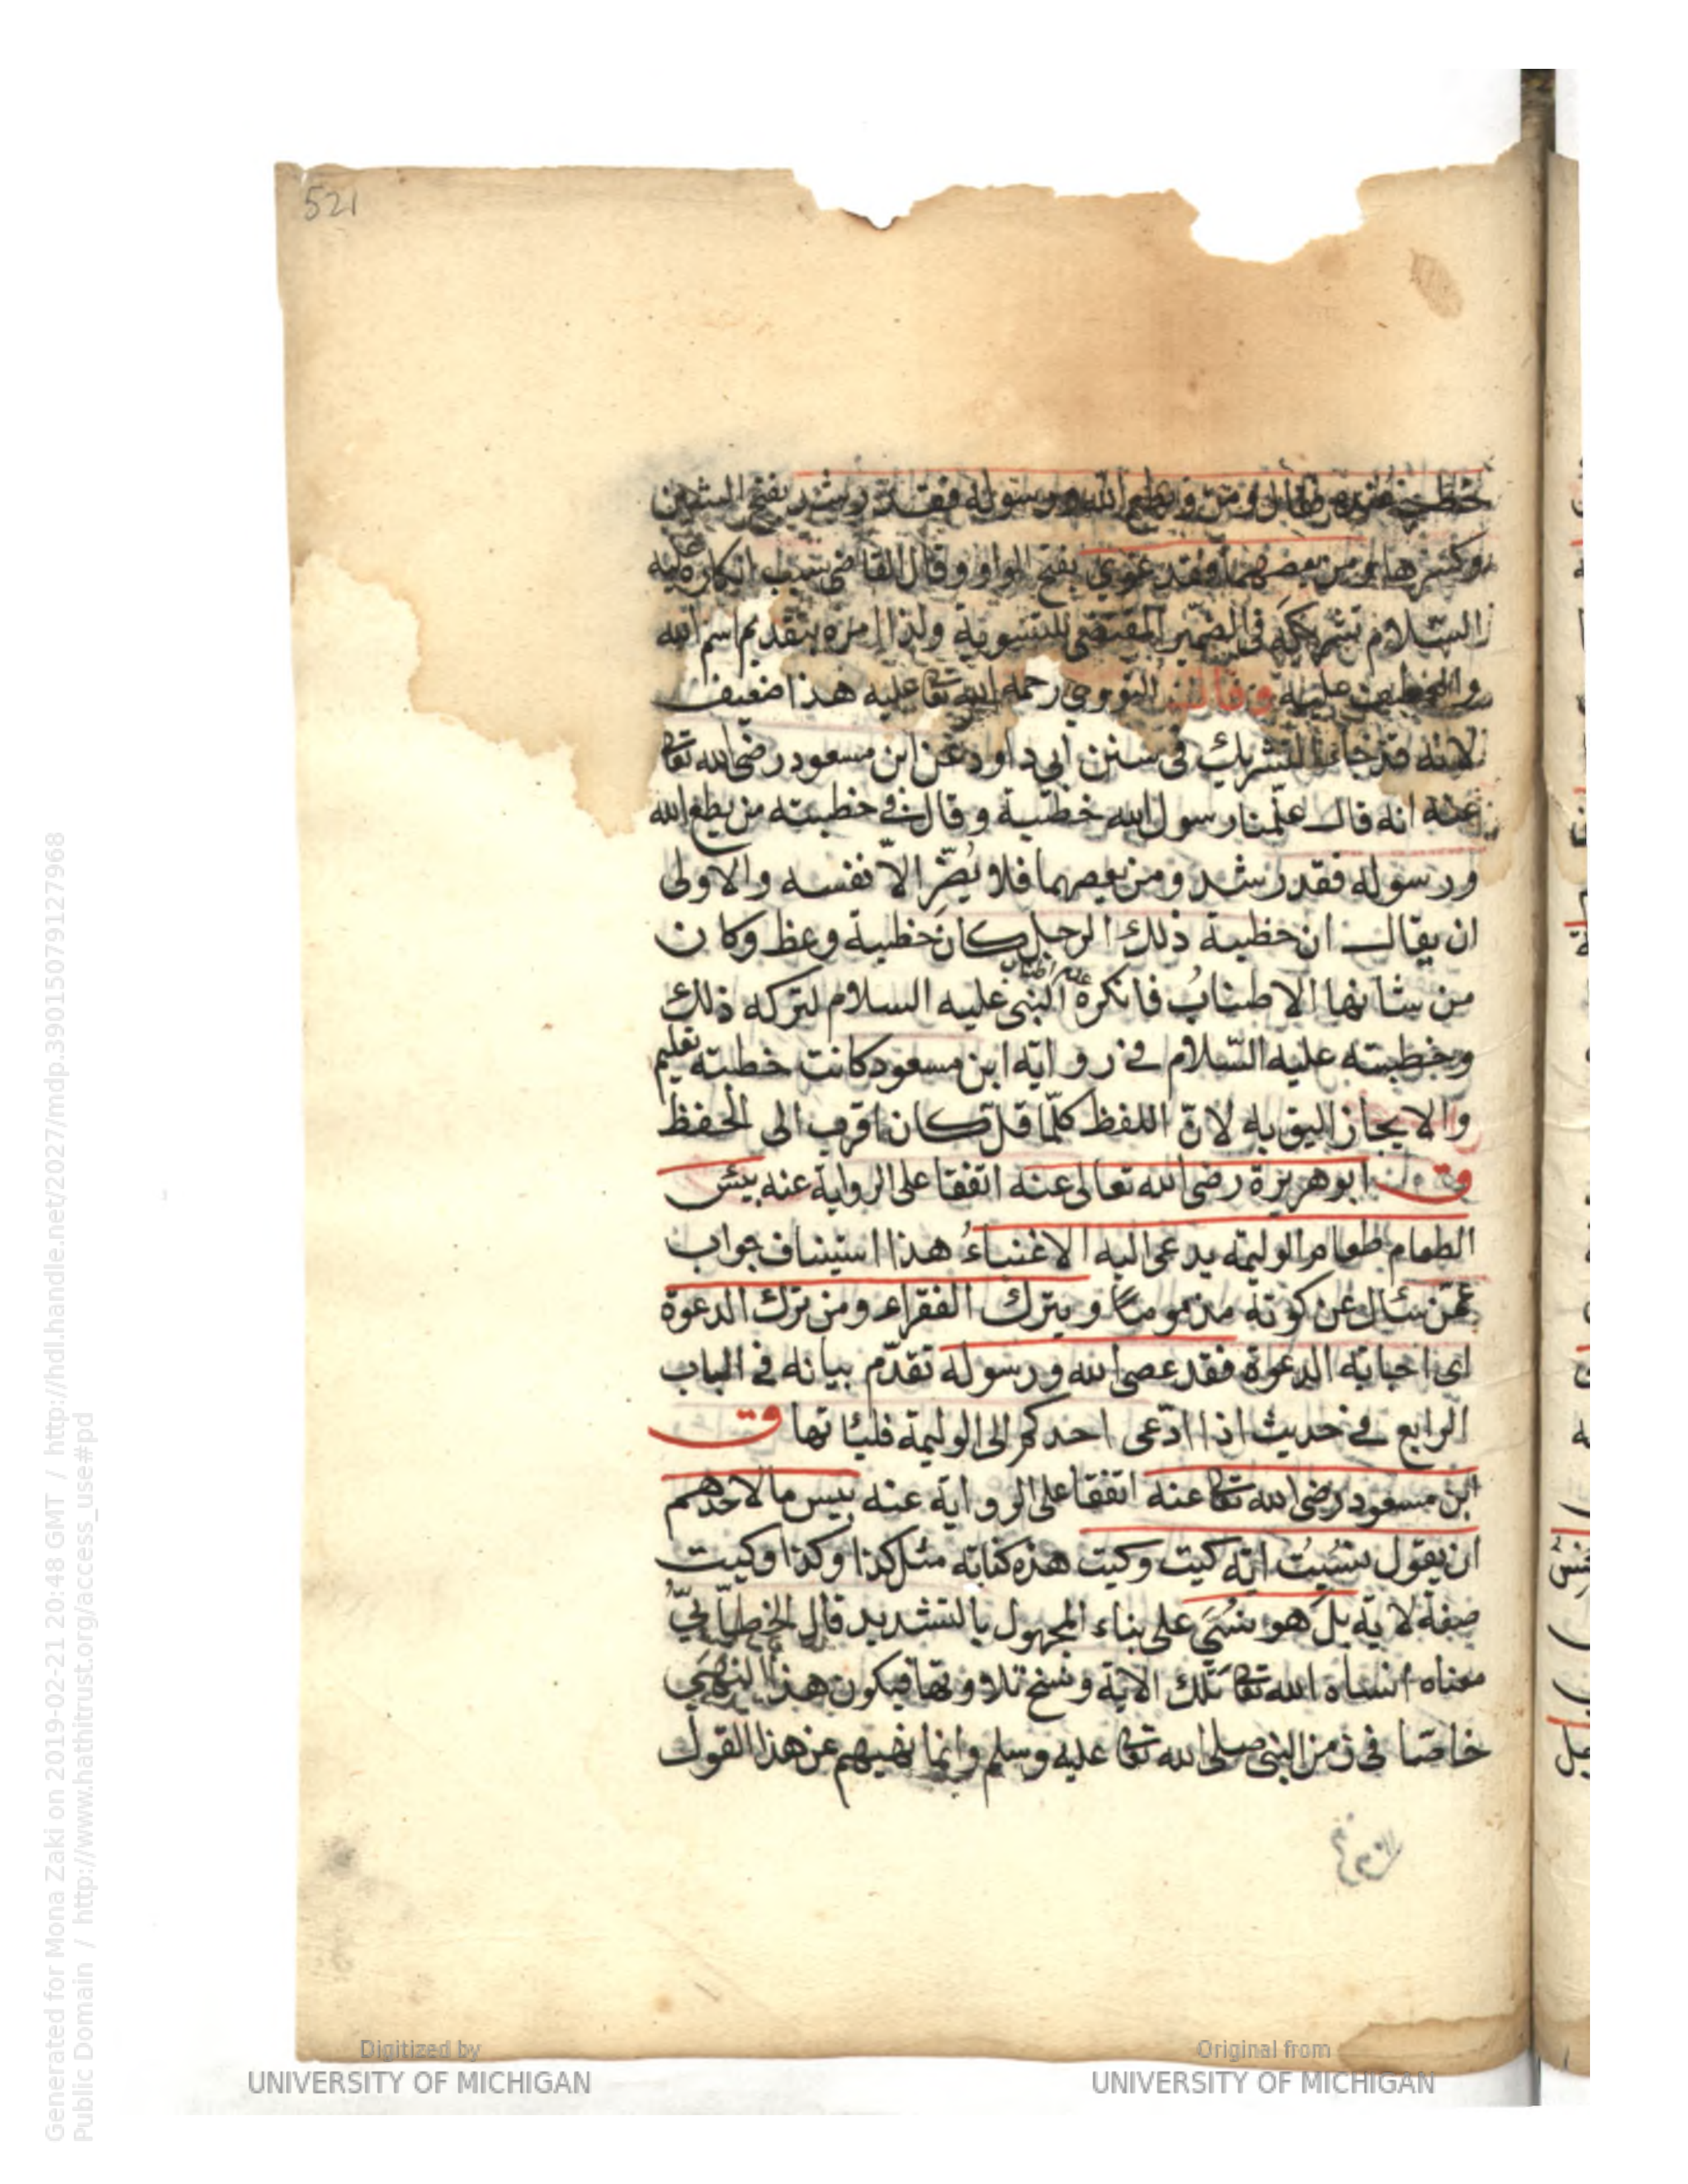 521
خطب عنده فقال ومن يطع الله ورسوله فقد رشد بفتح الشين
وكسرها ومن يعصهما فقد غوى بفتح الواو وقال القاضي سبب انكاره عليه
السلام تشريكه في الضمير المقتضى للتسوية ولذا امره بتقديم اسم الله
والعطف عليه وقال النووي رحمه الله تعا عليه هذا ضعيف
لانه قد جاء التشريك في سنن ابي داود عن ابن مسعود رضى الله تعا
عنه انه قال علّمنا رسول الله خطبة وقال في خطبته من يطع الله
ورسوله فقد رشد ومن يعصهما فلا يُضّر الاّ نفسه والاولى
ان يقال ان خطبة ذلك الرجل كان خطبة وعظ وكان
من شانها الاطنابُ فانكره النبى عليه السلام لتركه ذلك
وخطبته عليه السّلام في رواية ابن مسعود كانت خطبة تعليم
والايجاز اليق به لانّ اللفظ كلّما قلّ كان اقرب الى الحفظ
ق ابو هريرة رضى الله تعالى عنه اتفقا على الرواية عنه بئس
الطعام طعام الوليمة يدعى اليه الاغنياءُ هذا استيناف جواب
عمّن سأل عن كونه مذموما ويترك الفقراء ومن ترك الدعوة
اى اجابة الدعوة فقد عصى الله ورسوله تقدّم بيانه في الباب
الرابع في حديث اذا ادّعى احدكم الى الوليمة فليأتها ق
ابن مسعود رضى الله تعا عنه اتفقا على الرواية عنه بيس ما لاحدهم
ان يقول نسيت اية كيت وكيت هذه كناية مثل كذا وكذا وكيت
صفة لاية بل هو نُسّي على بناء المجهول بالتشديد قال الخطابيّ
معناه انساه الله تعا تلك الاية ونسخ تلاوتها فيكون هذا النهي
خاصّا في زمن النبى صلى الله تعا عليه وسلم وانما نهيهم عن هذا القول
Digitized by
UNIVERSITY OF MICHIGAN
Original from
UNIVERSITY OF MICHIGAN
Generated for Mona Zaki on 2019-02-21 20:48 GMT / http://hdl.handle.net/2027/mdp.39015079127968
Public Domain / http://www.hathitrust.org/access_use#pd